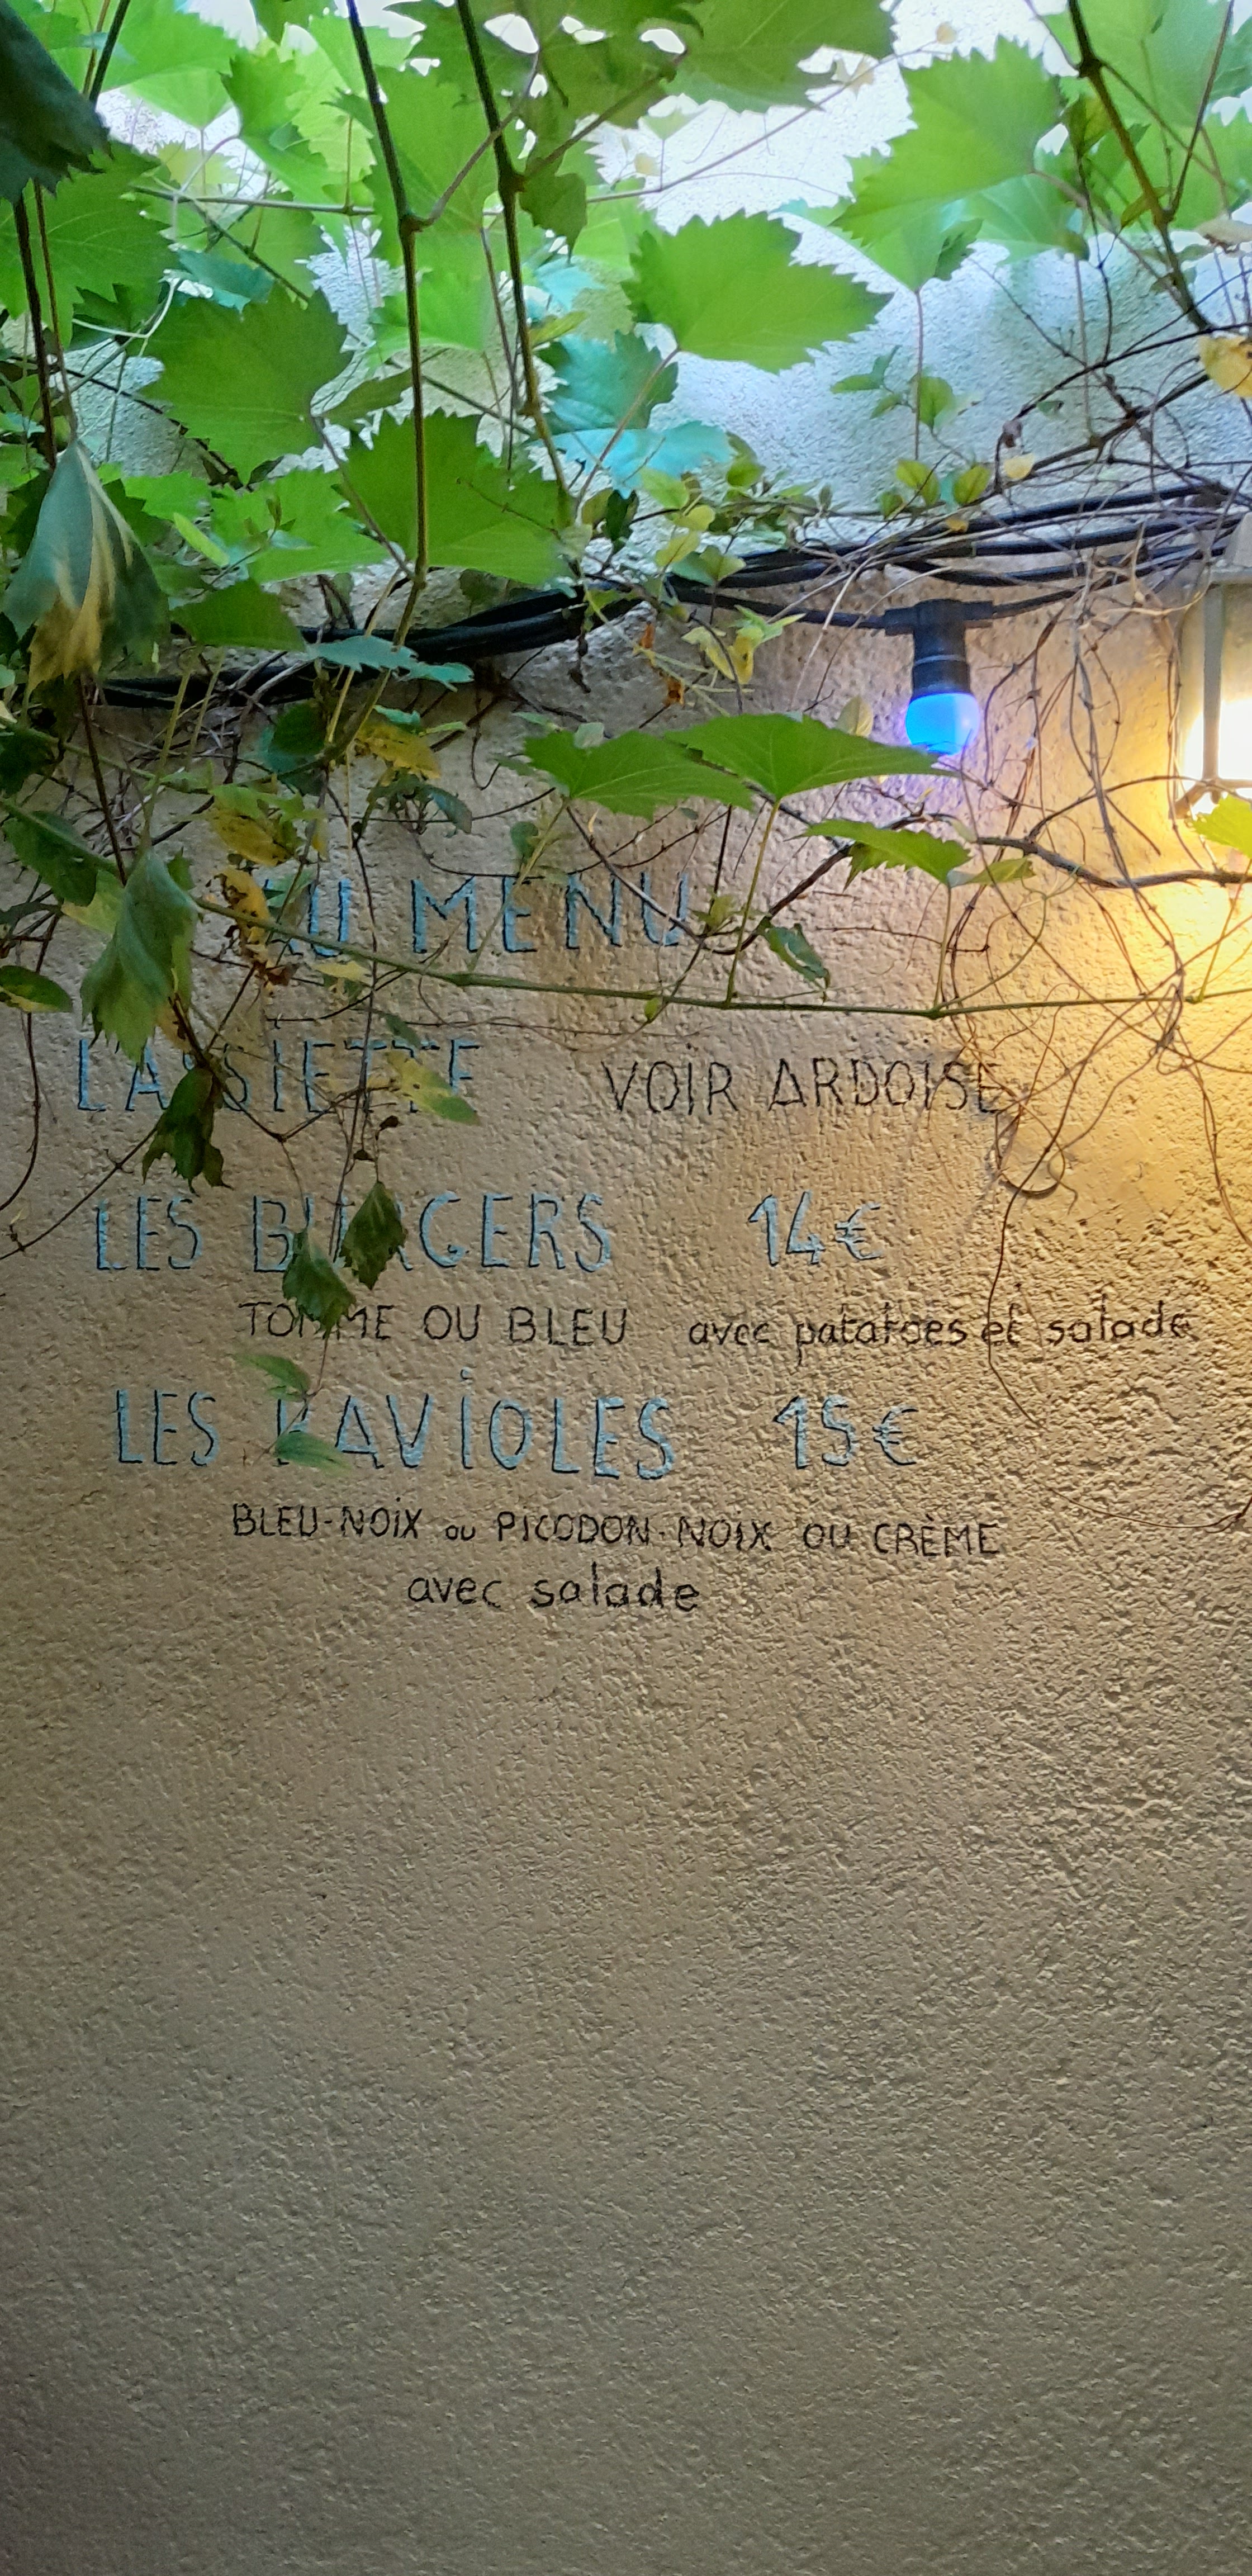 AU MENU
L'ASSIETTE VOIR ARDOISE
LES BURGERS 14€
TOMME OU BLEU avec patatoes et salade
LES RAVIOLES 15€
BLEU-NOIX ou PICODON-NOIX OU CRÈME
avec salade